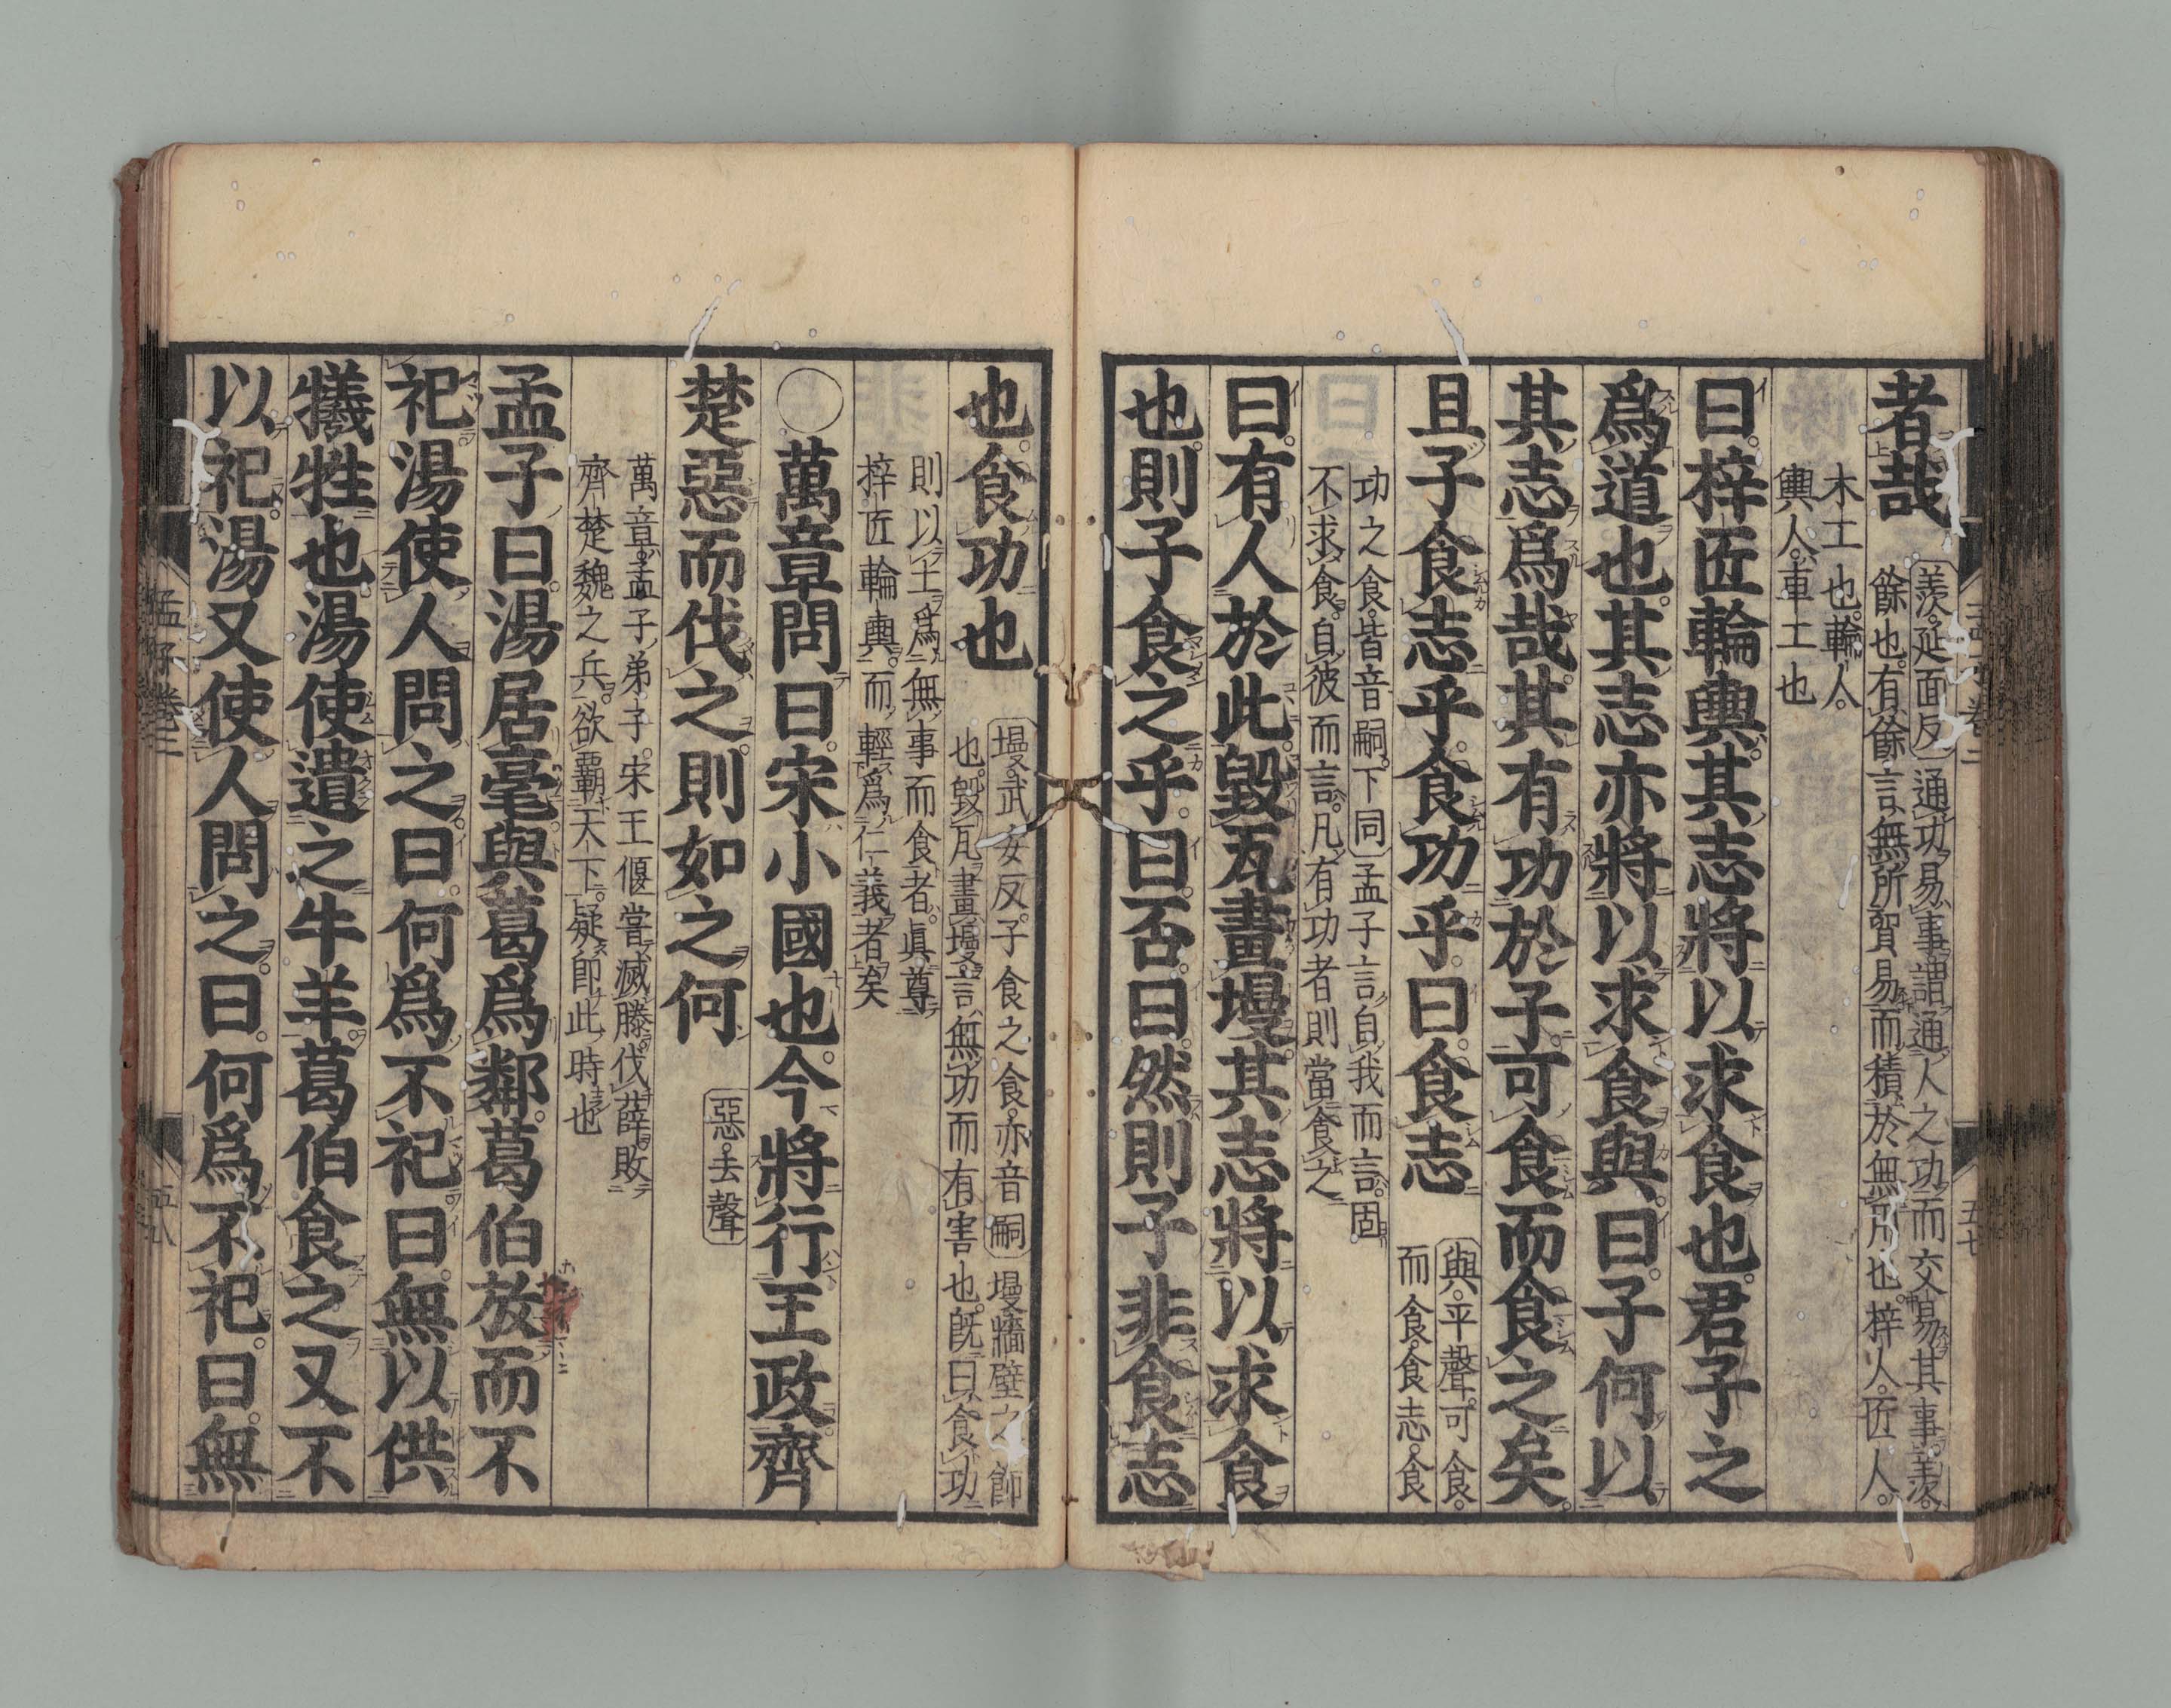 者哉
羨延面反通功易事謂通人之功而交易其事羨
餘也有餘言無所貿易而積於無所也梓人匠人
木工也輪人
輿人車工也
曰梓匠輪輿其志將以求食也君子之
爲道也其志亦將以求食與曰子何以
其志爲哉其有功於子可食而食之矣
且子食志乎食功乎曰食志
與平聲可食
而食食志食
功之食皆音嗣下同孟子言自我而言固
不求食自彼而言凡有功者則當食之
曰有人於此毀瓦畫墁其志將以求食
也則子食之乎曰否曰然則子非食志
也食功也
墁武安反子食之食亦音嗣墁牆壁之飾
也毀瓦畫墁言無功而有害也既曰食功
則以士爲無事而食者眞尊
梓匠輪輿而輕爲仁義者矣
○萬章問曰宋小國也今將行王政齊
楚惡而伐之則如之何
惡去聲
萬章孟子弟子宋王偃嘗滅滕伐薛敗
齊楚魏之兵欲覇天下疑卽此時也
孟子曰湯居亳與葛爲鄰葛伯放而不
祀湯使人問之曰何爲不祀曰無以供
犧牲也湯使遺之牛羊葛伯食之又不
以祀湯又使人問之曰何爲不祀曰無
孟子卷三
五八